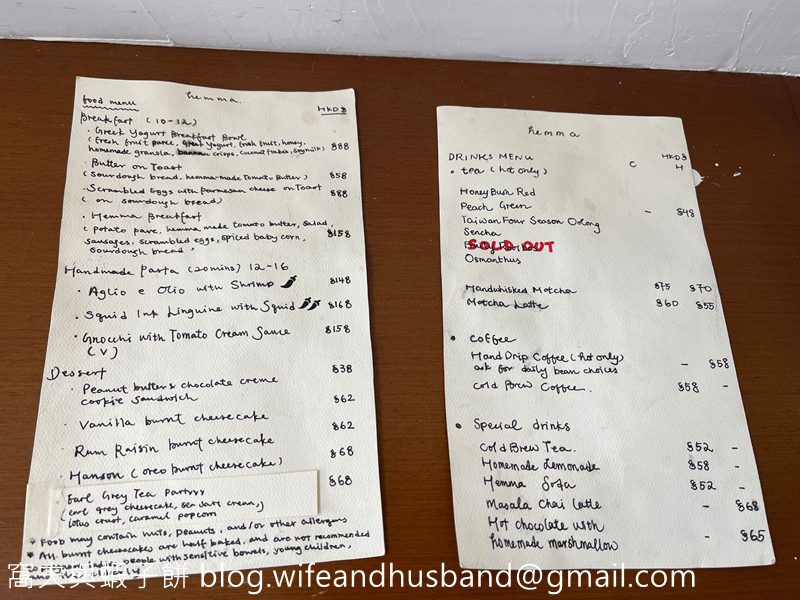 hemma.
food menu
HKD$
Breakfast (10-12)
· Greek Yogurt Breakfast Bowl
(fresh fruit puree, greek yogurt, fresh fruit, honey,
homemade granola, banana crisps, coconut flakes, soymilk) $88
· Butter on Toast
(sourdough bread, hemma-made tomato butter) $58
· Scrambled Eggs with parmesan cheese on Toast
(on sourdough bread) $88
· Hemma Breakfast
(potato pave, hemma made tomato butter, salad,
sausages, scrambled eggs, spiced baby corn,
sourdough bread $158
Handmade Pasta (20mins) 12-16
· Aglio e Olio with Shrimp $148
· Squid Ink Linguine with Squid $168
· Gnocchi with Tomato Cream Sauce $158
(V)
Dessert
· Peanut butter & chocolate creme $38
cookie sandwich
· Vanilla burnt cheesecake $62
· Rum Raisin burnt cheesecake $62
· Hanson (oreo burnt cheesecake) $68
Earl Grey Tea Partyyy $68
(earl grey cheesecake, sea salt cream,
lotus crust, caramel popcorn
* Food may contain nuts, peanuts, and/or other allergens
* All burnt cheesecakes are half baked, and are not recommended
people with sensitive bowels, young children,
hemma
DRINKS MENU HKD$
· tea (hot only) C H
Honey Bush Red
Peach Green - $48
Taiwan Four Season Oolong
Sencha
SOLD OUT
Osmanthus
Handwhisked Matcha $75 $70
Matcha Latte $60 $55
· coffee
Hand Drip Coffee (hot only) - $58
ask for daily bean choices
Cold Brew Coffee $58 -
· Special drinks
Cold Brew Tea $52 -
Homemade Lemonade $58 -
Hemma Soda $52 -
Masala Chai Latte - $68
Hot chocolate with
homemade marshmallow - $65
窩夫與蝦子餅 blog.wifeandhusband@gmail.com